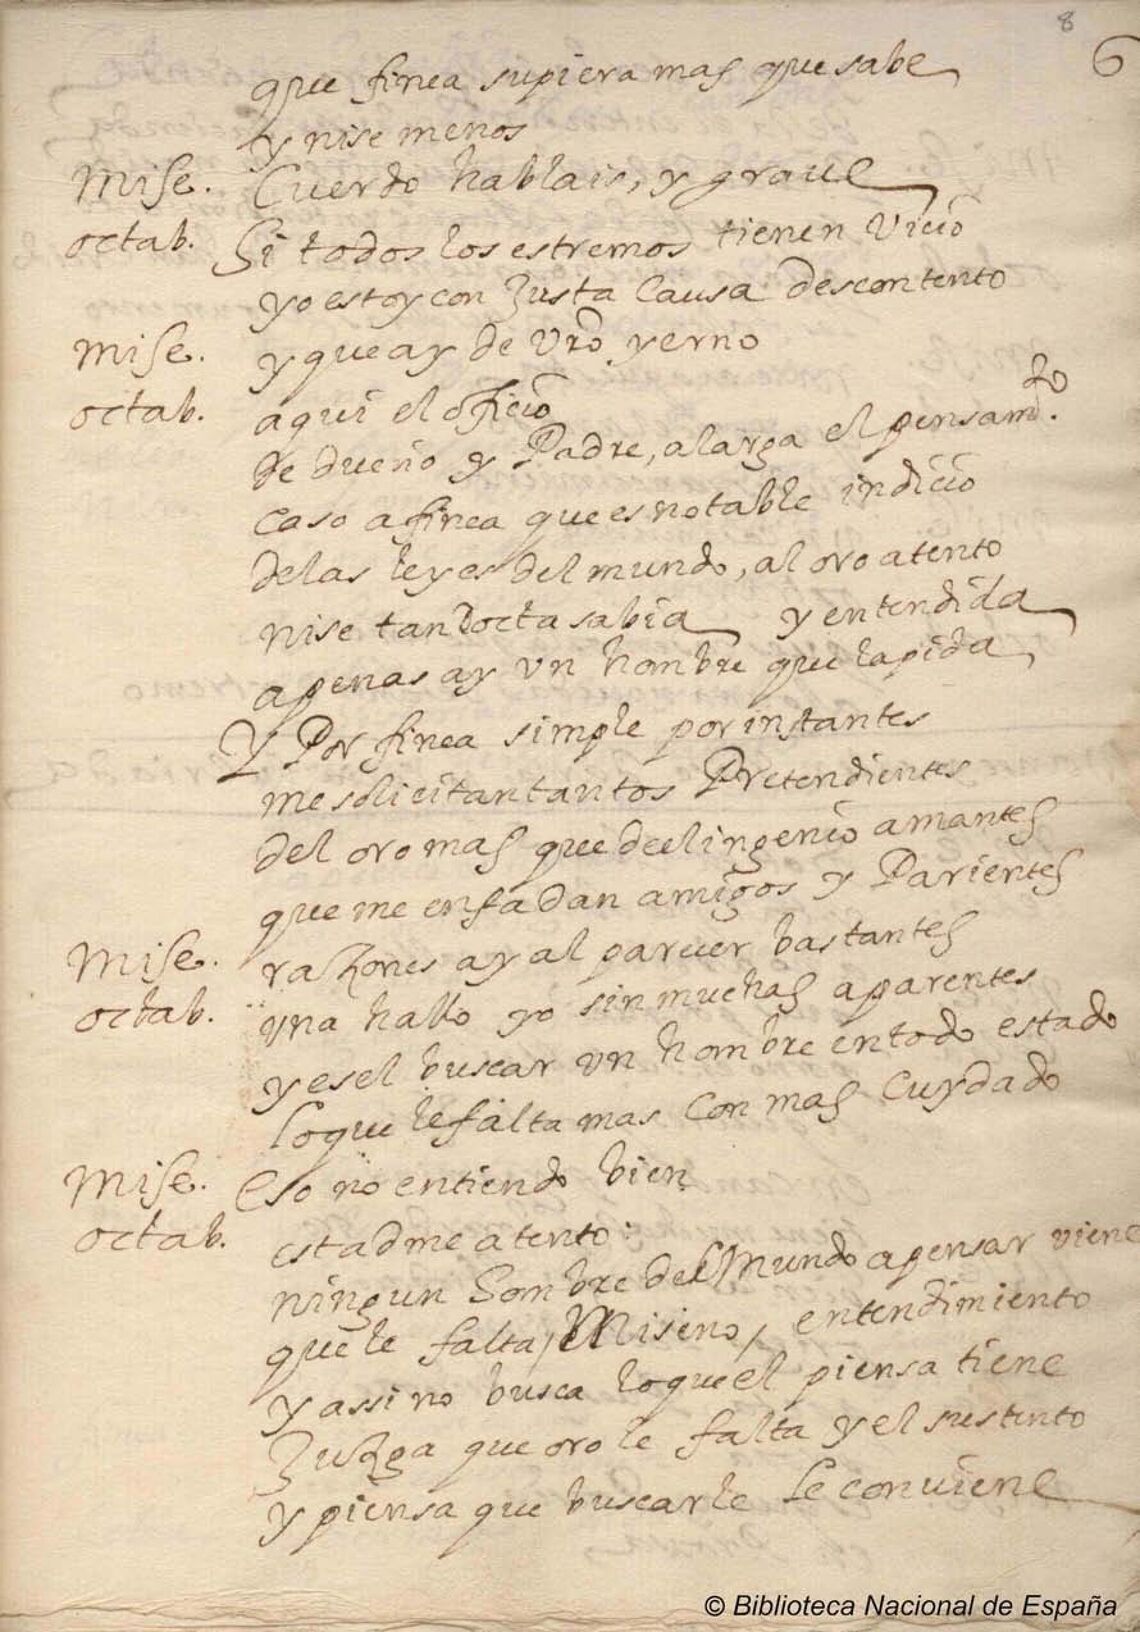 8
6
que finea supiera mas que sabe
y nise menos
Mise. Cuerdo hablais, y graue
octab. Si todos los estremos tienen vicio
yo estoy con Justa Causa descontento
Mise. y que ay de Vro yerno
octab. aqui el oficio
de dueño y Padre, alarga el pensamto.
caso a finea que es notable indicio
delas leyes del mundo, al oro atento
nise tan docta sabia y entendida
apenas ay vn hombre que la pida
Y Por finea simple por instantes
me solicitan tantos Pretendientes
del oro mas que de el ingenio amantes
que me enfadan amigos y Parientes
Mise. razones ay al parecer bastantes
octab. vna hallo yo sin muchas aparentes
y es el buscar vn hombre en todo estado
lo que le falta mas con mas Cuydado
Mise. Eso no entiendo bien
octab. estadme atento:
ningun hombre del Mundo a pensar viene
que le falta, Miseno, entendimiento
y assi no busca lo que el piensa tiene
Juzga que oro le falta y el sustento
y piensa que buscarle le conuiene
© Biblioteca Nacional de España